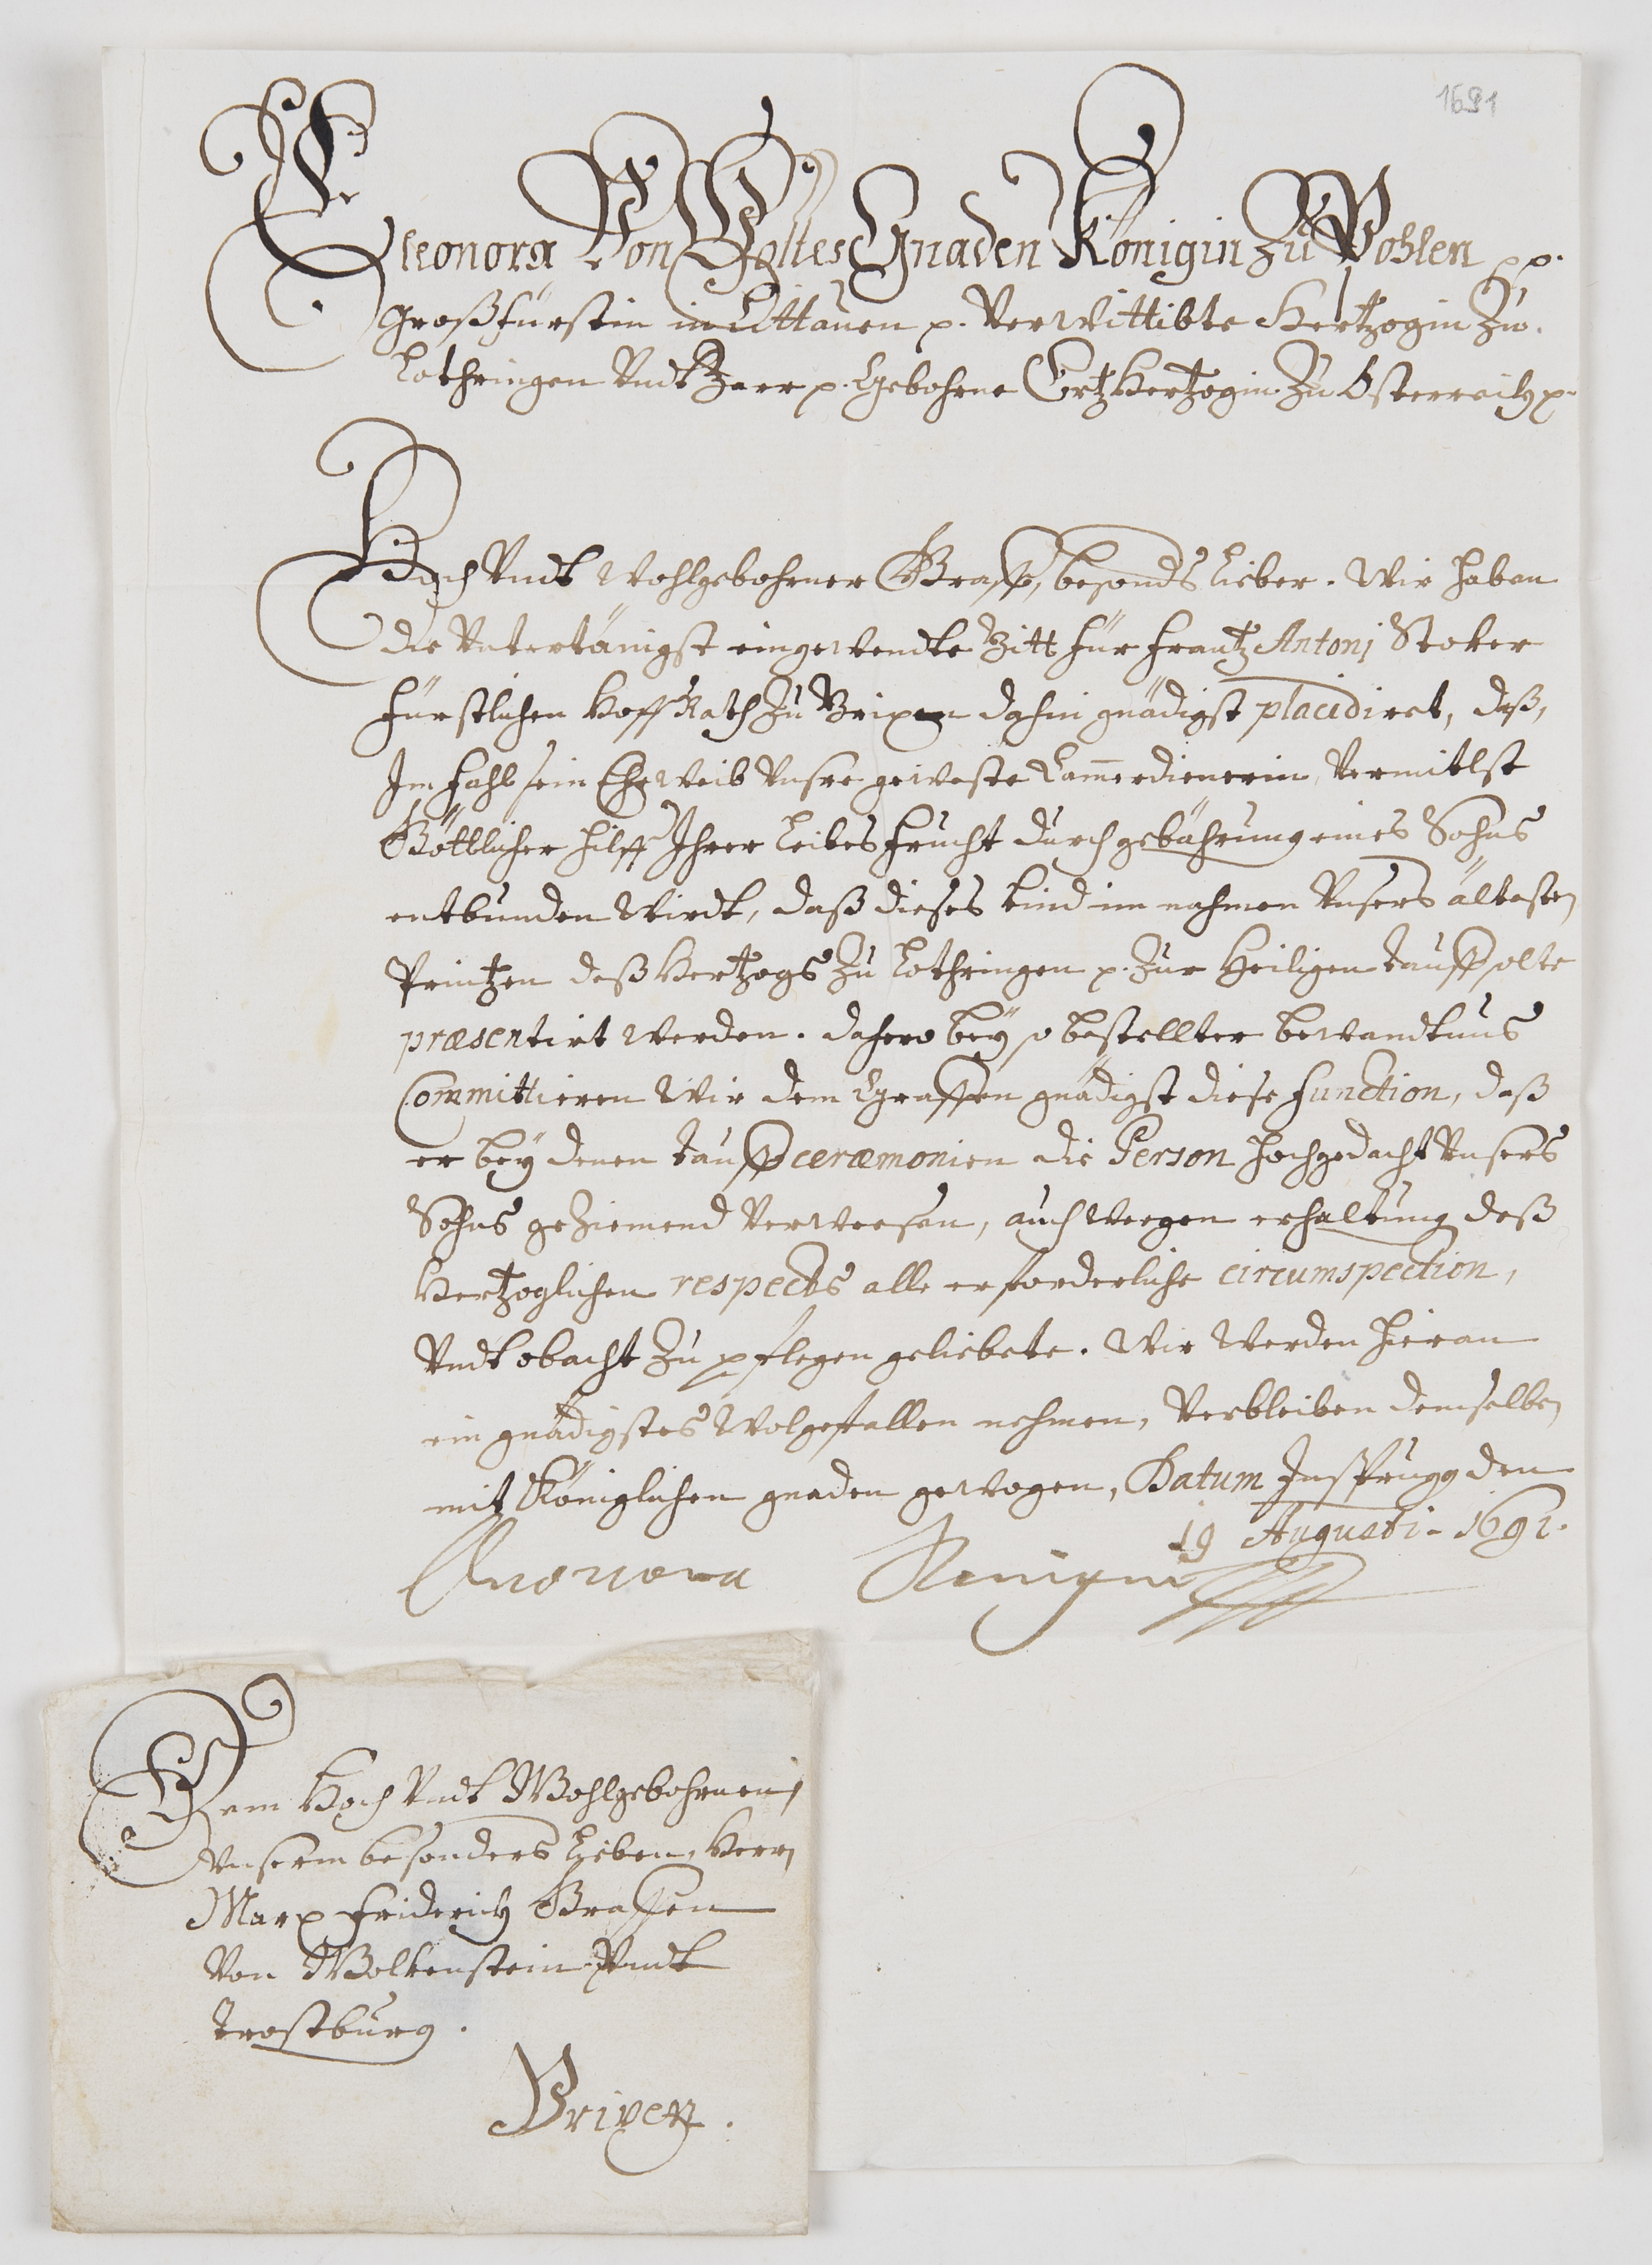 1691
Eleonora Von Gottes Gnaden Königin Zu Pohlen pp.
Großfürstin in Littauen p. Verwittibte Hertzogin Zu
Lothringen Undt Baar p. Gebohrne ErtzHertzogin Zu Österreich p.
Hoch Undt Wohlgebohrner Graff, besonds Lieber. Wir haben
die Untertänigst eingewendte Bitt für Frantz Antonj Stoker
Fürstlichen Hoff Rath Zu Brixen dahin gnädigst placidiret, daß,
Im Fahl sein Eheweib Unsre geweste Cammerdienerin, Vermitlst
Göttlicher Hilff Ihrer Leibes Frucht durch gebährung eines Sohns
entbunden Wirdt, daß dieses kind im nahmen Unsers ältesten
Printzen deß Hertzogs Zu Lothringen p. Zur Heiligen tauff solte
præsentirt werden. Dahero beÿ so bestellter bewandtnus
Committieren Wir dem Graffen gnädigst diese Function, daß
er beÿ denen tauff ceræmonien die Person hochgedacht Unsers
Sohns geziemend Verweesen, auch wegen erhaltung deß
Hertzoglichen respects alle erforderliche circumspection,
Undt obacht Zu pflegen geliebete. Wir Werden hieran
ein gnädigstes Wolgefallen nehmen, Verbleiben demselben
mit Königlichen gnaden gewogen, Datum Insprugg den
19 Augusti 1691.
Eleonora Königin
Dem Hoch Undt Wohlgebohrnen,
Unserm besonders Lieben, Herrn
Marx Friderich Graffen
Von Wolkenstein Undt
Trostburg.
Brixen.